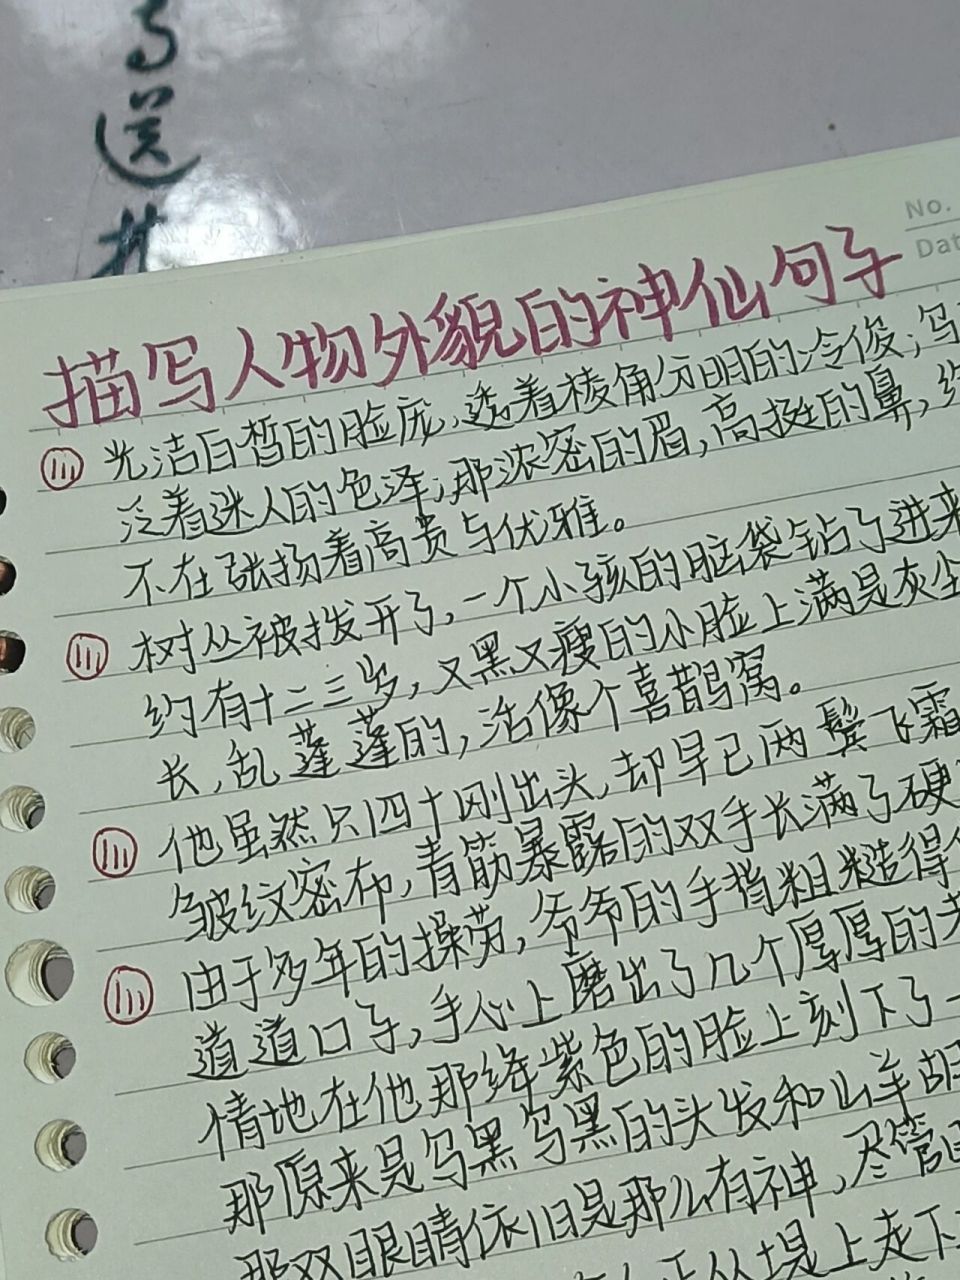 与
送
No.
Dat
描写人物外貌的神仙句子
光洁白皙的脸庞，透着棱角分明的冷俊；乌
泛着迷人的色泽；那浓密的眉，高挺的鼻，绝
不在张扬着高贵与优雅。
树丛被拨开了，一个小孩的脑袋钻了进来
约有十二三岁，又黑又瘦的小脸上满是灰尘
长，乱蓬蓬的，活像个喜鹊窝。
他虽然只四十刚出头，却早已两鬓飞霜
皱纹密布，青筋暴露的双手长满了硬
由于多年的操劳，爷爷的手指粗糙得
道道口子，手心上磨出了几个厚厚的老
情地在他那绛紫色的脸上刻下了一
那原来是乌黑乌黑的头发和山羊胡
那双眼睛依旧是那么有神，尽管
从堤上走下